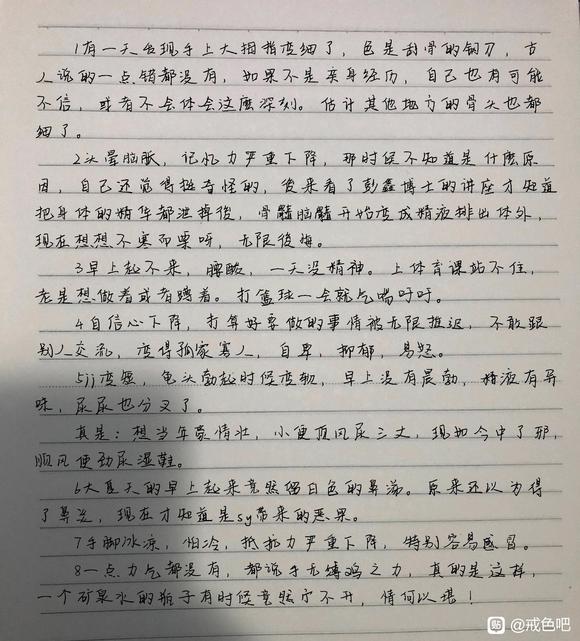 1有一天发现手上大拇指变细了，色是刮骨的钢刀，古
人说的一点错都没有，如果不是亲身经历，自己也有可能
不信，或者不会体会这麼深刻。估计其他地方的骨头也都
细了。
2头晕脑胀，记忆力严重下降，那时候不知道是什麼原
因，自己还觉得挺奇怪的，後来看了彭鑫博士的讲座才知道
把身体的精华都泄掉後，骨髓脑髓开始变成精液排出体外，
现在想想不寒而栗呀，无限後悔。
3早上起不来，腰酸，一天没精神。上体育课站不住，
老是想做着或者蹲着。打篮球一会就气喘吁吁。
4自信心下降，打算好要做的事情被无限推迟，不敢跟
别人交流，变得孤家寡人，自卑，抑郁，易怒。
5jj变短，龟头勃起时候变软，早上没有晨勃，精液有异
味，尿尿也分叉了。
真是：想当年豪情壮，小便顶风尿三丈，现如今中了邪，
顺风使劲尿湿鞋。
6大夏天的早上起来竟然留白色的鼻涕。原来还以为得
了鼻炎，现在才知道是sy带来的恶果。
7手脚冰凉，怕冷，抵抗力严重下降，特别容易感冒。
8一点力气都没有，都说手无缚鸡之力，真的是这样，
一个矿泉水的瓶子有时候竟然拧不开，情何以堪！
贴 @戒色吧